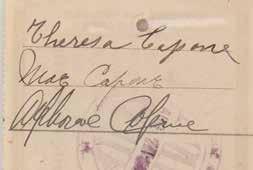 Theresa Capone
Mae Capone
Alphonse Capone